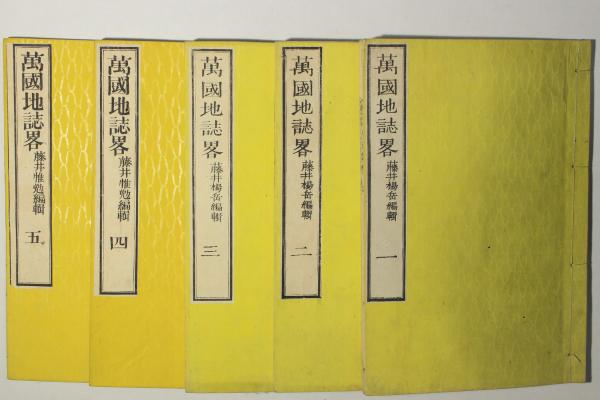 萬國地誌畧 藤井楊岳編輯 一
萬國地誌畧 藤井楊岳編輯 二
萬國地誌畧 藤井楊岳編輯 三
萬國地誌畧 藤井惟勉編輯 四
萬國地誌畧 藤井惟勉編輯 五